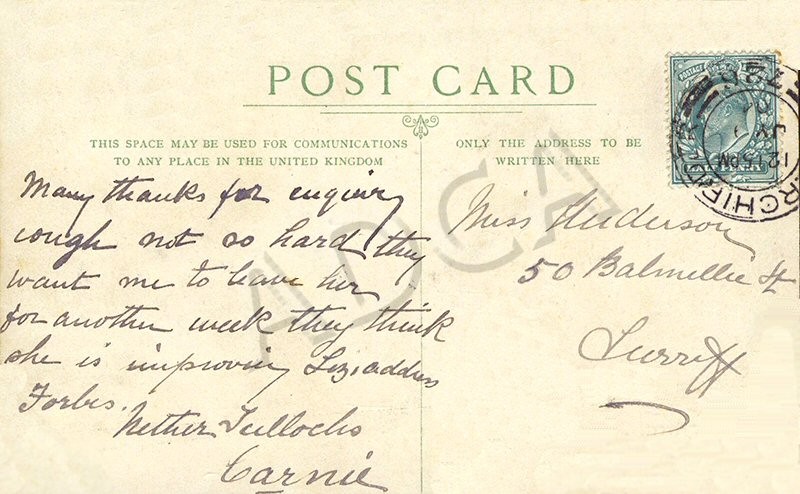 POST CARD
THIS SPACE MAY BE USED FOR COMMUNICATIONS
TO ANY PLACE IN THE UNITED KINGDOM
ONLY THE ADDRESS TO BE
WRITTEN HERE
Many thanks for enquiry
cough not so hard they
want me to leave her
for another week they think
she is improving Liz, address
Forbes.
Nether Tullochs
Carnie
Miss Anderson
50 Balmellie St
Turriff
POSTAGE
12 15 PM
ADCA